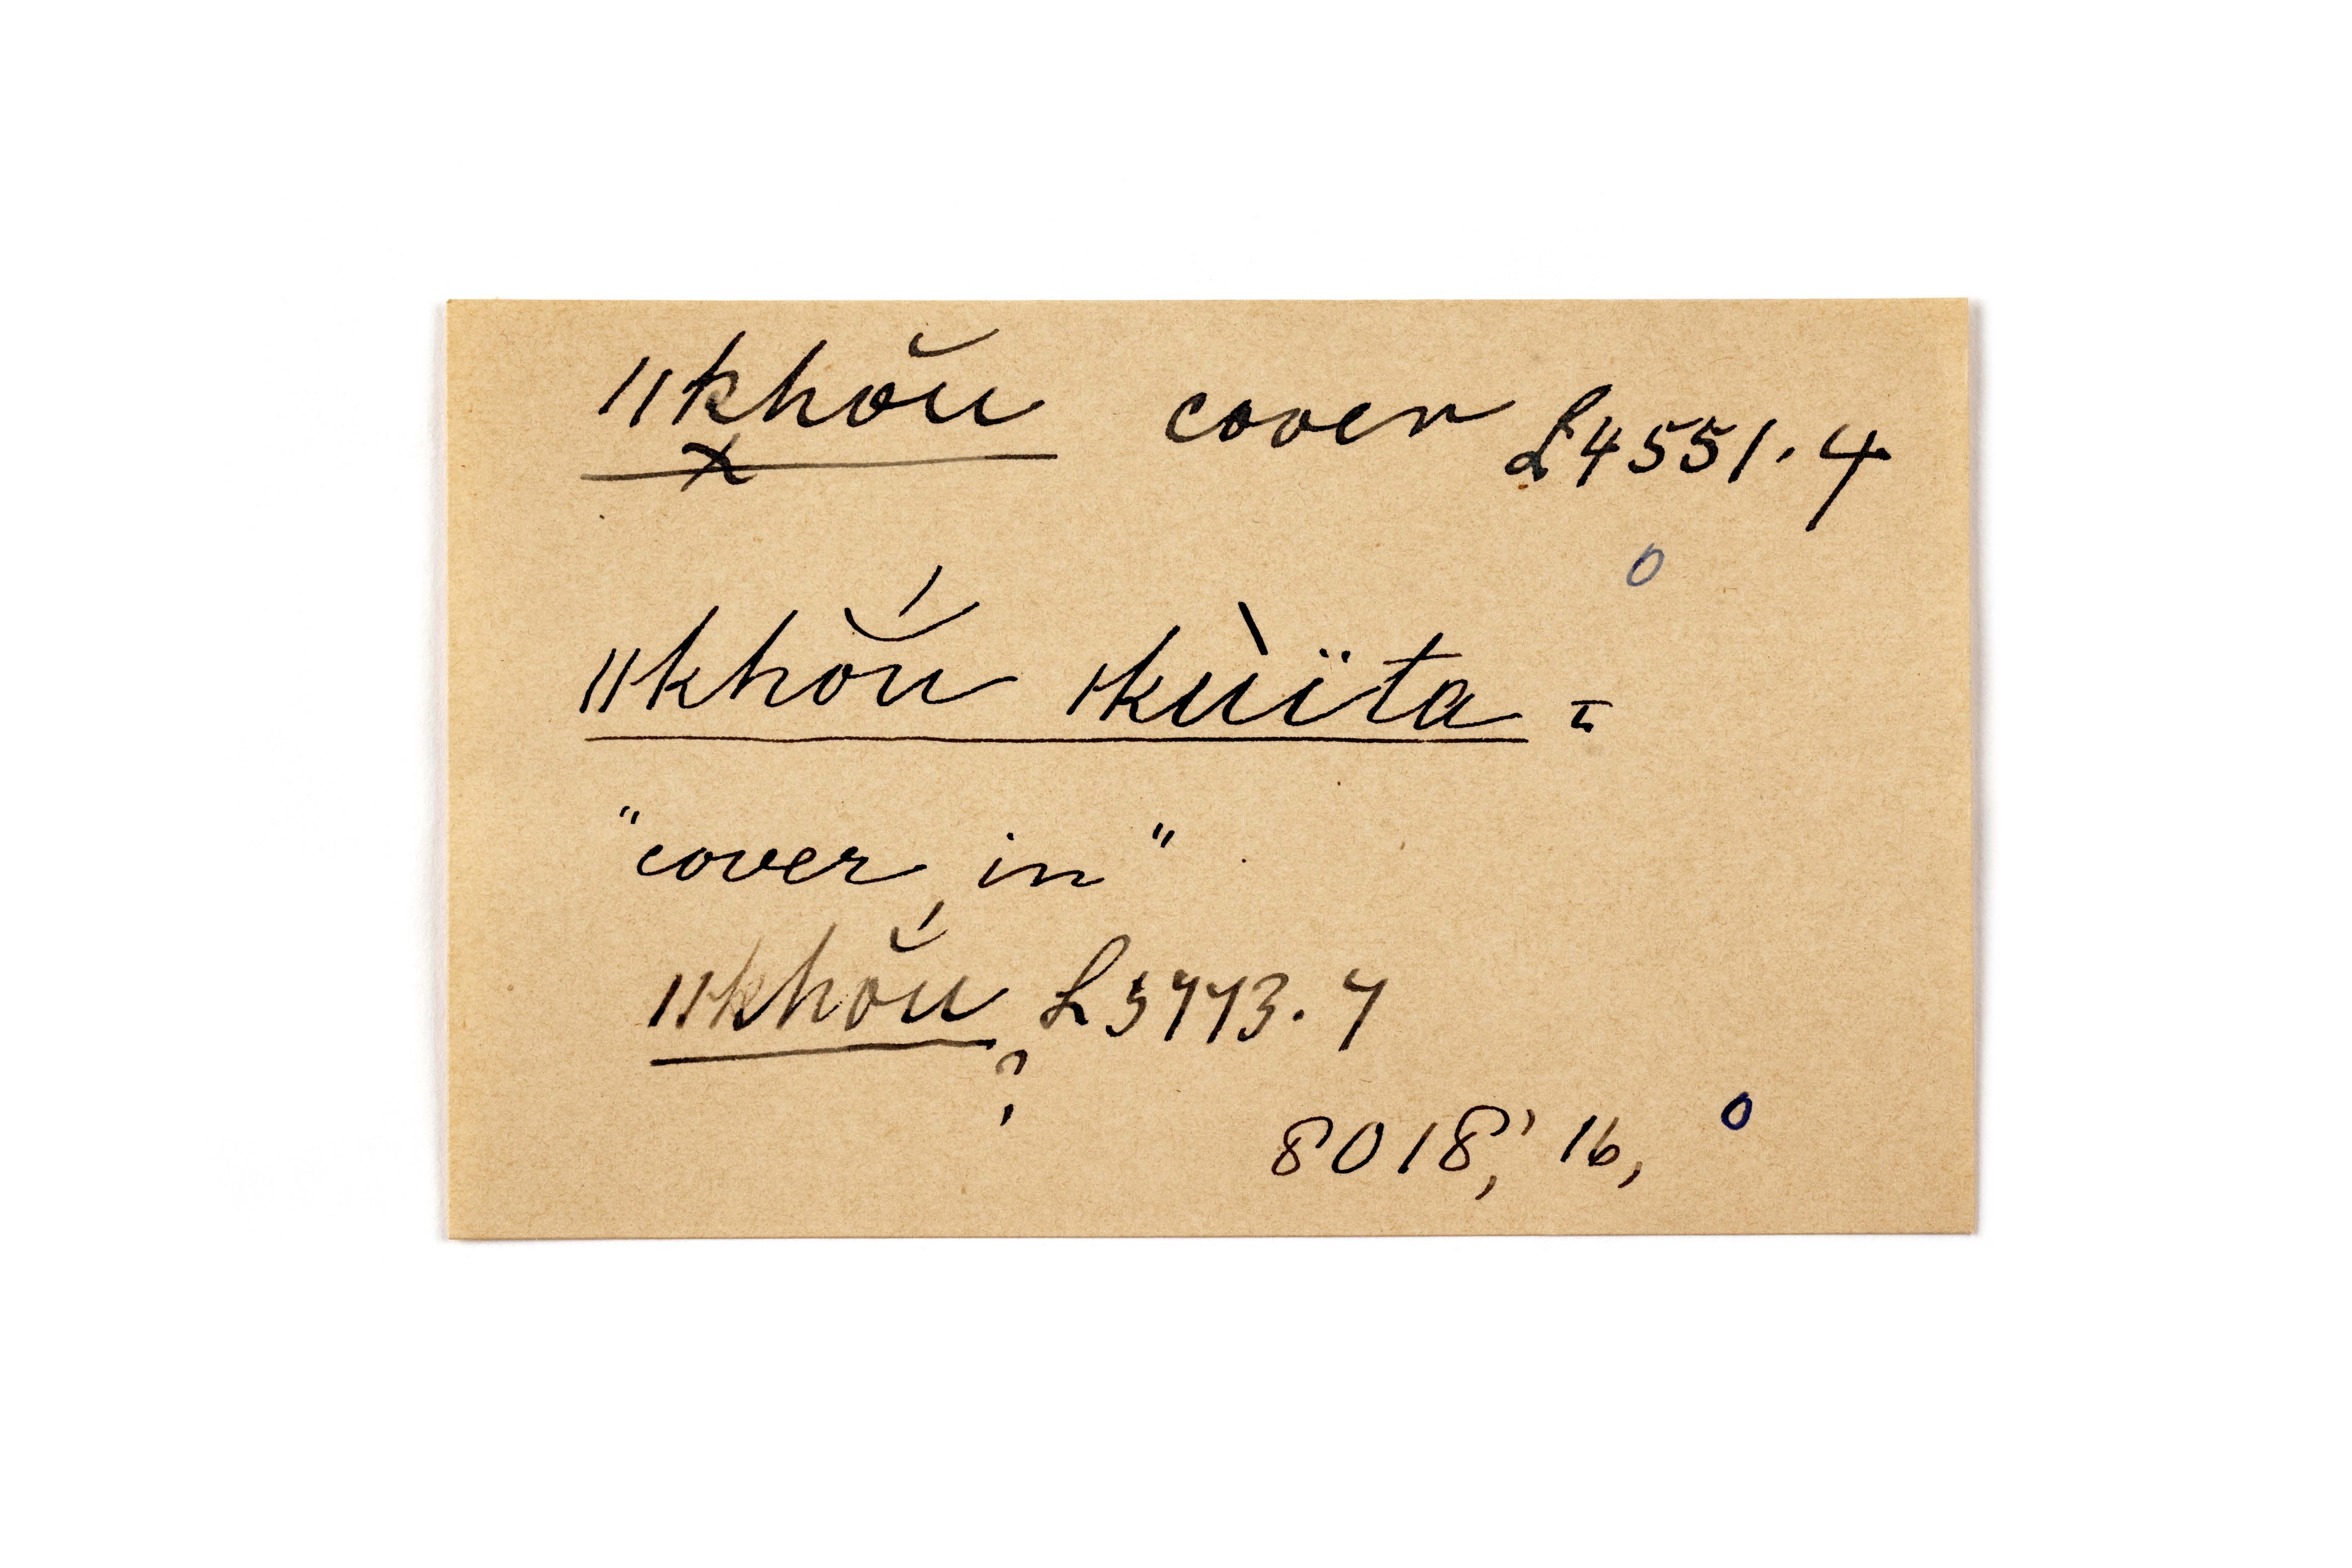 ǁkhŏu cover L4551.4
x
0
ǁkhŏ́u ǀkùïta =
"cover in"
ǁkhŏ́u L5773.7
?
8018,' 16, 0